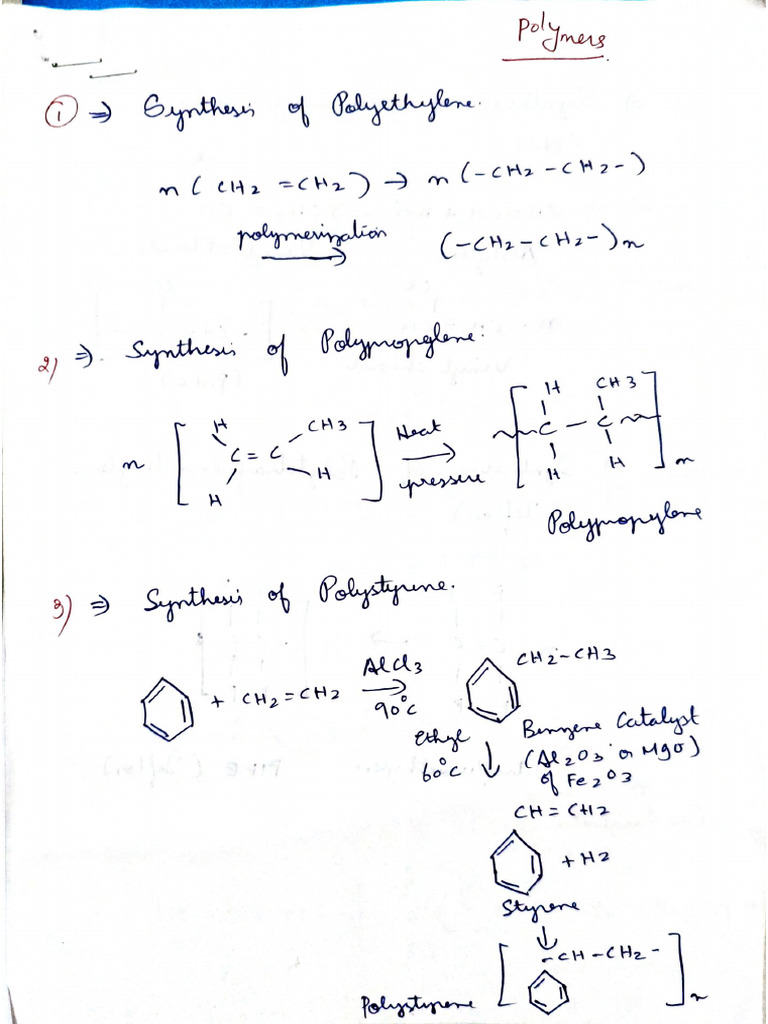 Polymers
① ⇒ Synthesis of Polyethylene.
n ( CH2 = CH2 ) → n (-CH2 - CH2 -)
polymerization → (-CH2-CH2-)n
2) ⇒ Synthesis of Polypropylene.
H CH3 H CH3
n [ C = C ] Heat → pressure [ C - C ]n
H H H H
Polypropylene
3) ⇒ Synthesis of Polystyrene.
+ CH2=CH2 AlCl3 → 90°C CH2-CH3
Ethyl Benzene Catalyst
60°C ↓ (Al2O3 or MgO)
of Fe2O3
CH = CH2
+ H2
Styrene
↓
Polystyrene [ -CH-CH2- ]n